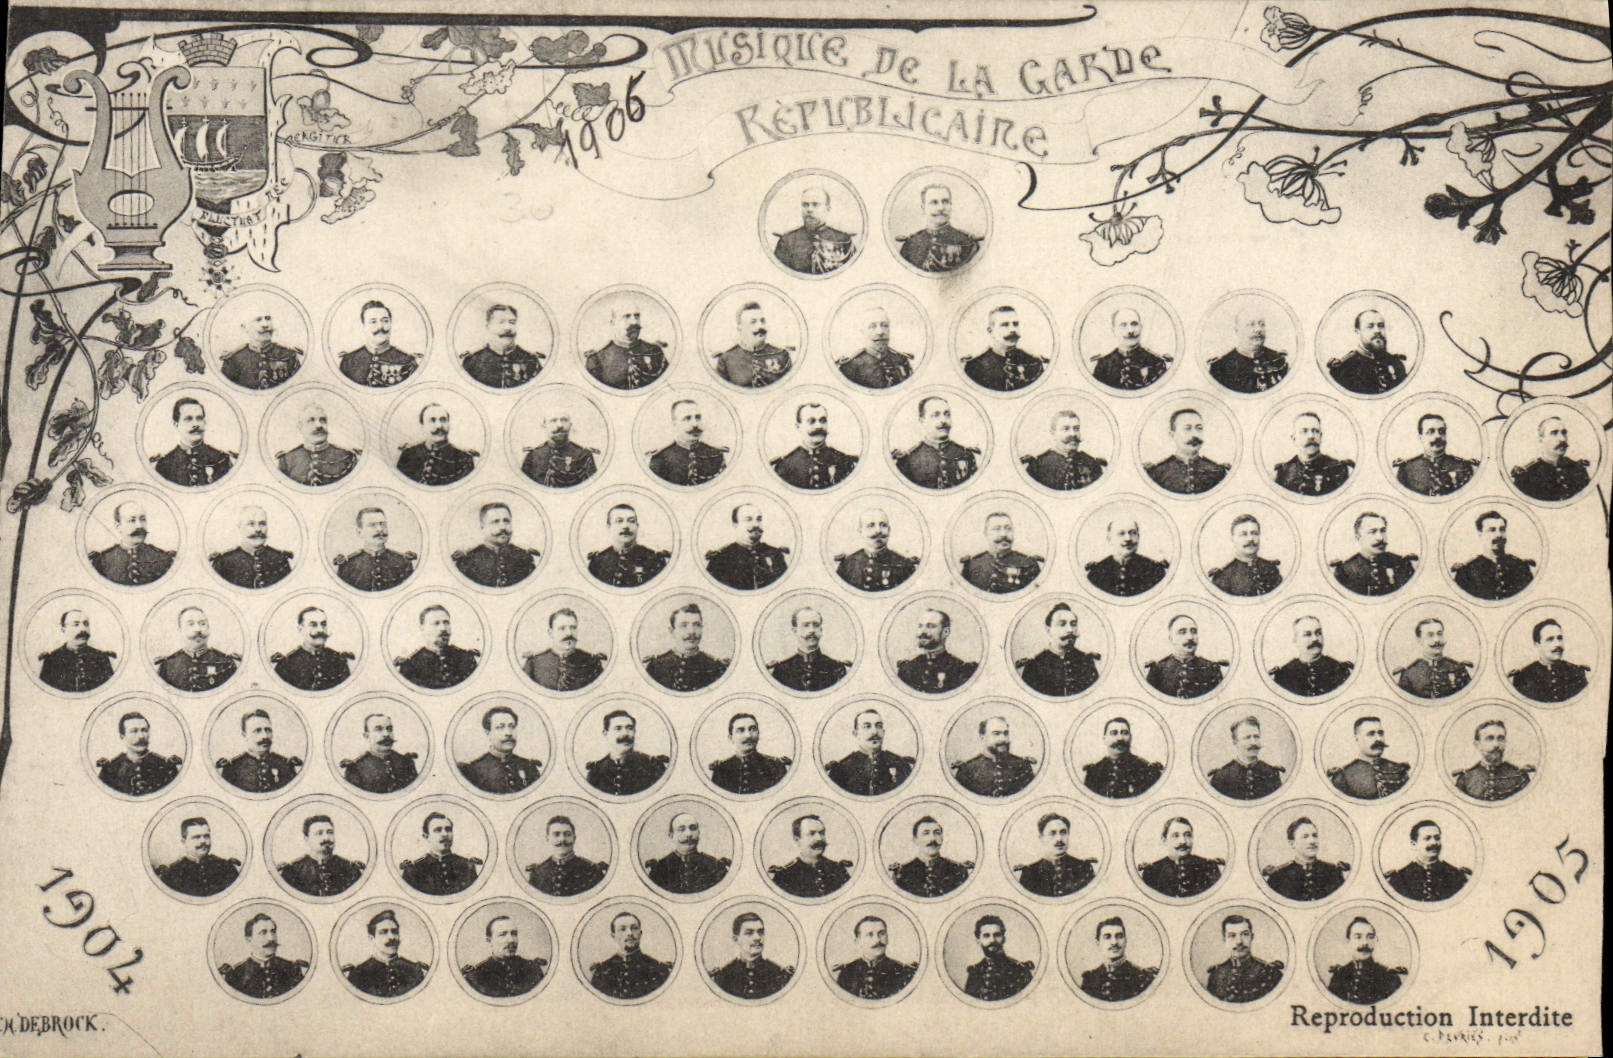 MUSIQUE DE LA GARDE
RÉPUBLICAINE
1906
MERGITUR
FLUCTUAT NEC
30
1904
1905
CH. DEBROCK.
Reproduction Interdite